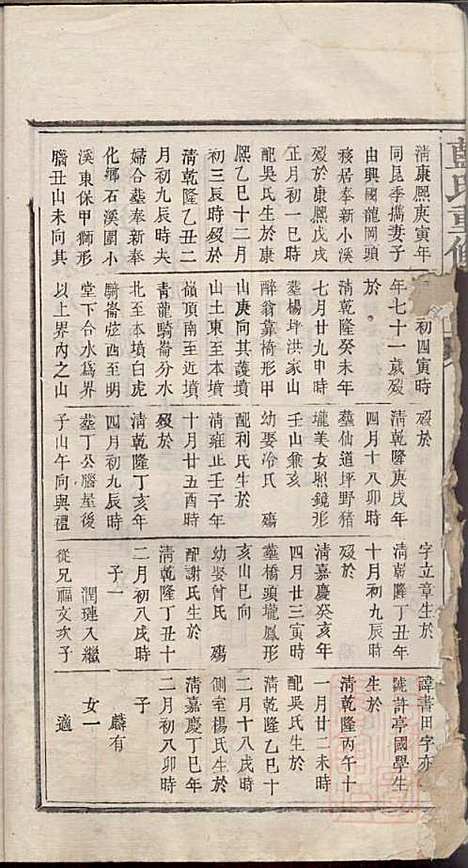 藍氏重修
清康熙庚寅年
同昆季攜妻子
由興國龍岡頭
移居奉新小溪
歿於康熙戊戌
正月初一巳時
配吳氏生於康
熙乙巳十二月
初三辰時歿於
清乾隆乙丑二
月初九辰時夫
婦合墓奉新奉
化鄉石溪圍小
溪東保甲獅形
腦丑山未向其
初四寅時
年七十一歲歿
於
清乾隆癸未年
七月廿九申時
墓楊坪洪家山
醉翁靠椅形甲
山庚向其護墳
山土東至本墳
嶺頂南至近墳
青龍騎崙分水
北至本墳白虎
騎崙弦西至明
堂下合水為界
以上界內之山
歿於
清乾隆庚戌年
四月十八卯時
墓仙道坪野猪
壠美女照鏡形
壬山兼亥
幼娶冷氏 殤
配利氏生於
清雍正壬子年
十月廿五酉時
歿於
清乾隆丁亥年
四月初九辰時
墓丁公腦屋後
子山午向與禮
字立章生於
清乾隆丁丑年
十月初九辰時
歿於
清嘉慶癸亥年
四月廿三寅時
墓橋頭壠鳳形
亥山巳向
幼娶曾氏 殤
配謝氏生於
清乾隆丁丑十
二月初八戌時
子一
潤璉入繼
從兄福文次子
諱書田字亦
號許亭國學生
生於
清乾隆丙午十
一月廿二未時
配吳氏生於
清乾隆乙巳十
二月十八戌時
側室楊氏生於
清嘉慶丁巳年
二月初八卯時
子
麟有
女一
適